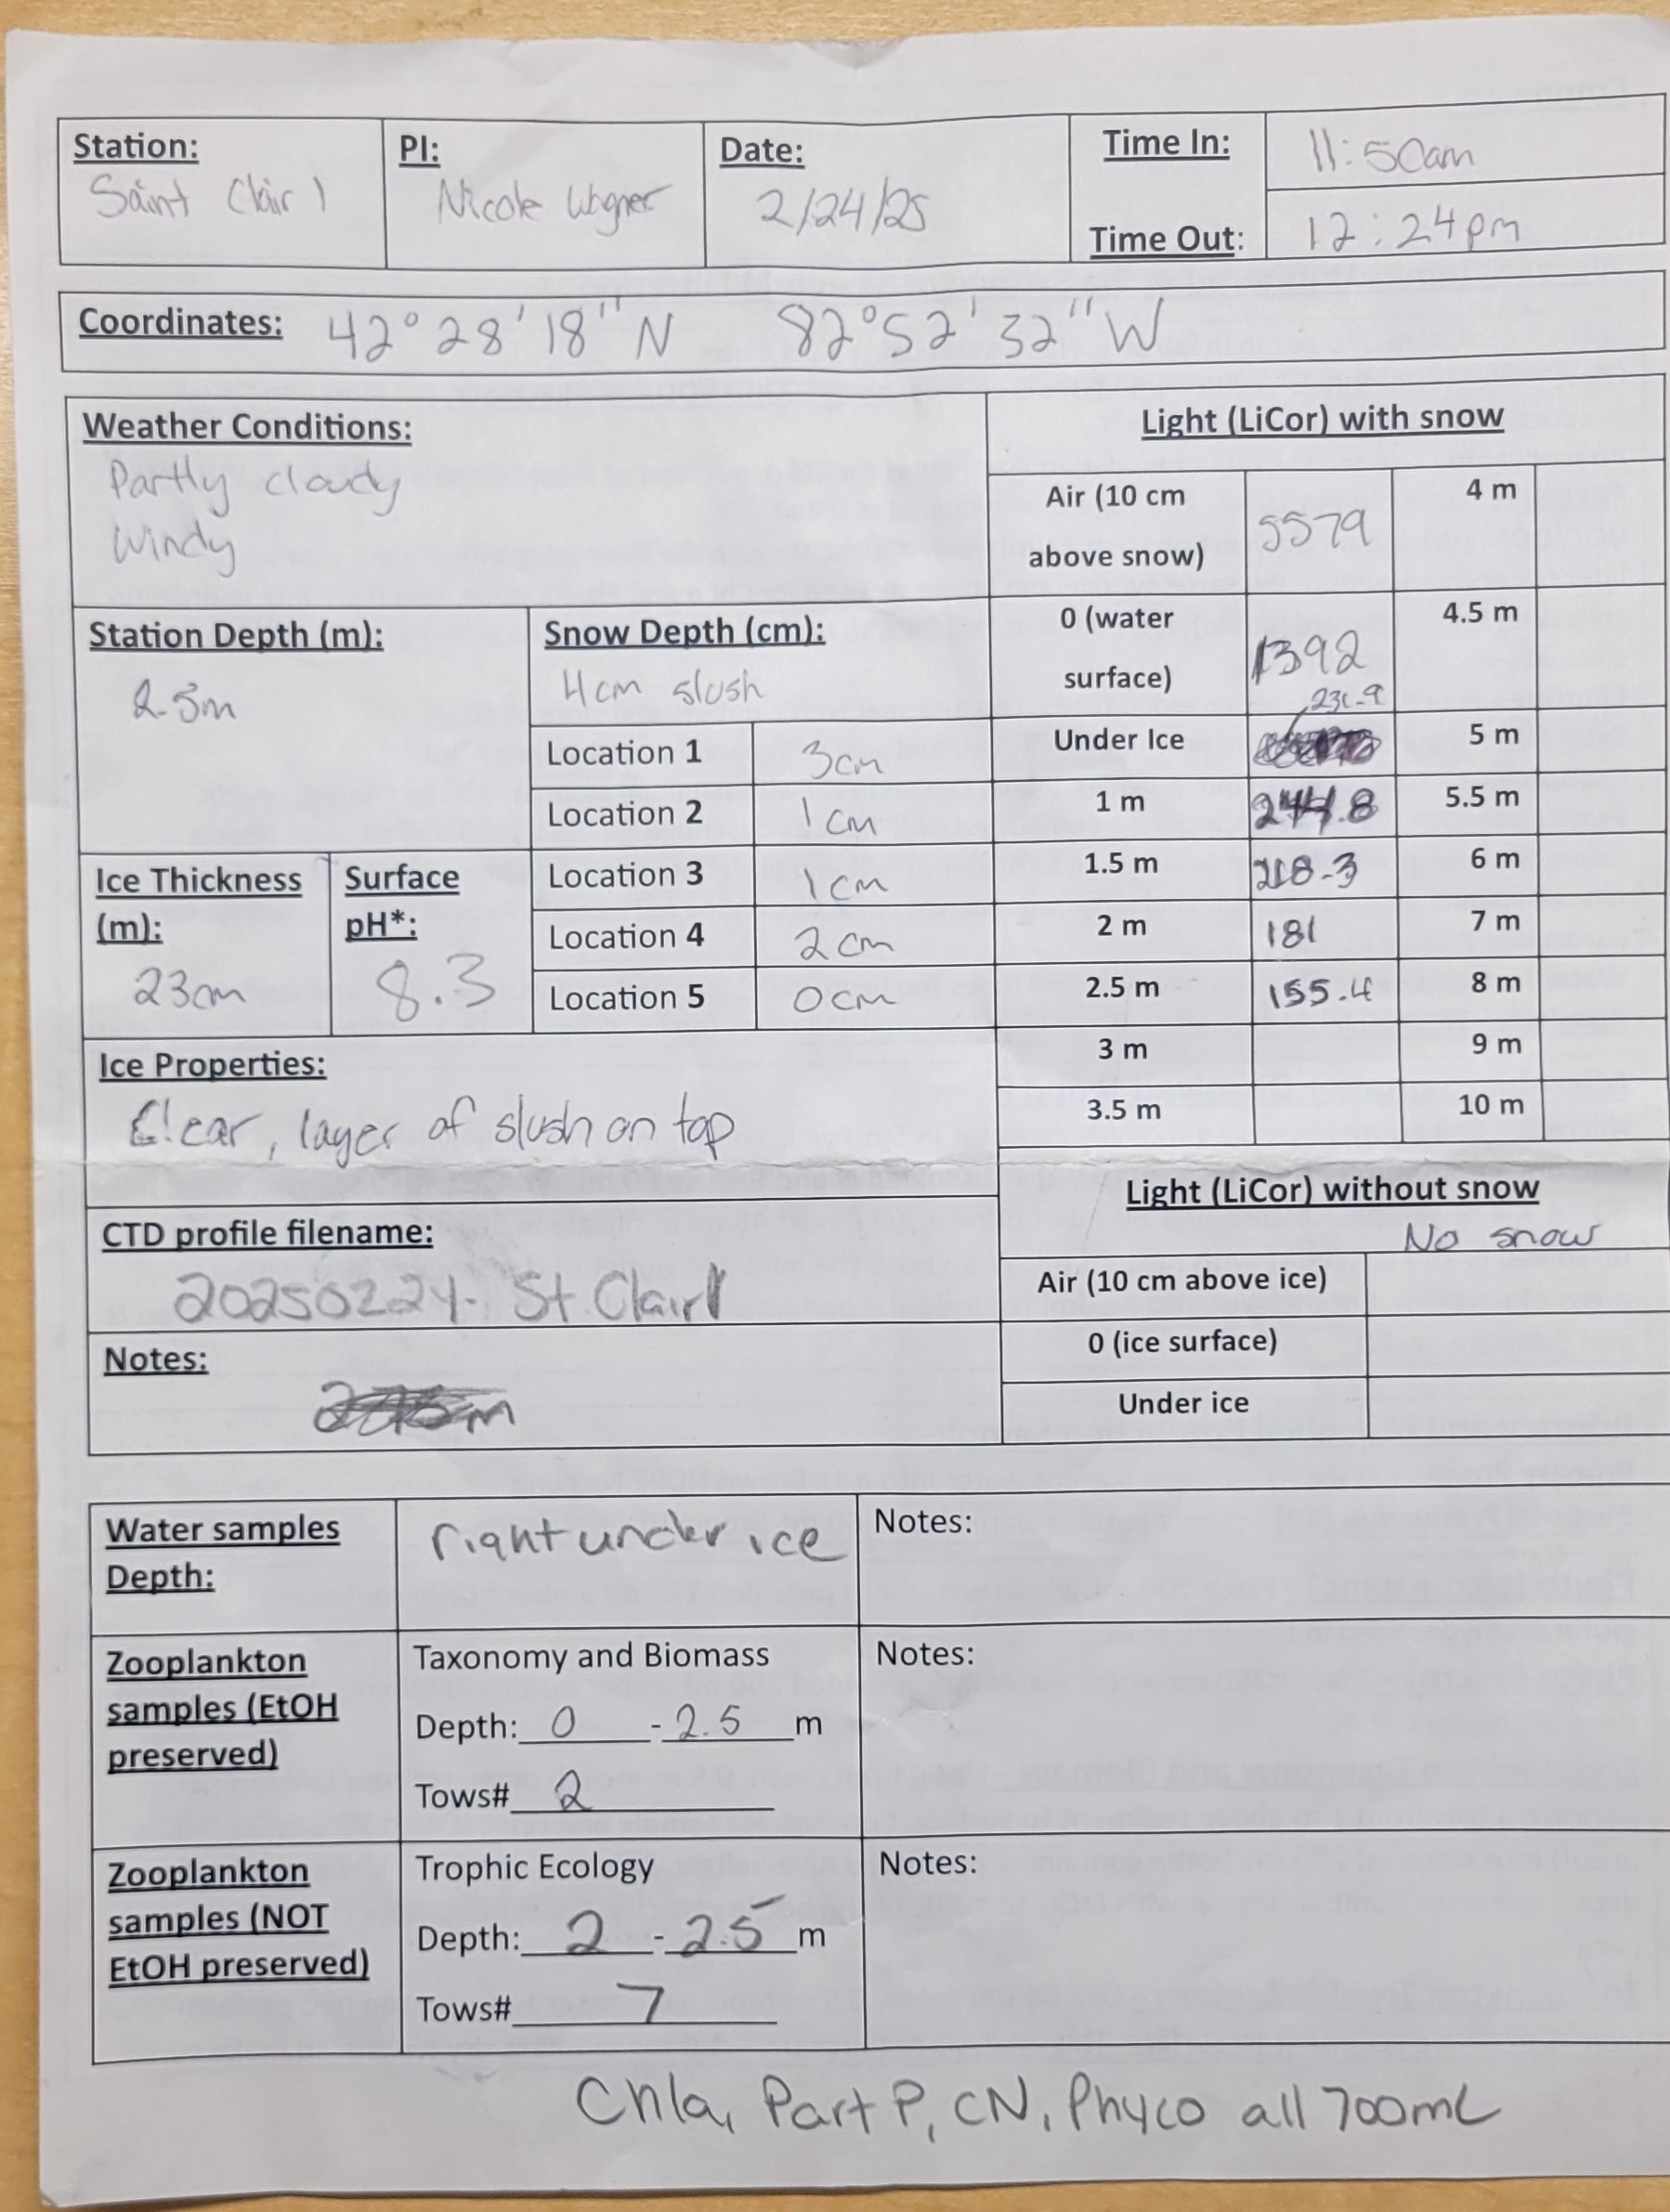 Station: PI: Date: Time In: 11:50am
Saint Clair 1 Nicole Wagner 2/24/25
Time Out: 12:24pm
Coordinates: 42°28'18"N 82°52'32"W
Weather Conditions:
Partly cloudy
Windy
Station Depth (m):
2.5m
Snow Depth (cm):
4cm slush
Location 1 3cm
Location 2 1cm
Location 3 1cm
Location 4 2cm
Location 5 0cm
Ice Thickness
(m):
23cm
Surface
pH*:
8.3
Ice Properties:
Clear, layer of slush on top
CTD profile filename:
20250224. St Clair1
Notes:
Light (LiCor) with snow
Air (10 cm
above snow) 5579 4 m
0 (water
surface) 1392 4.5 m
Under Ice 5 m
1 m 5.5 m
1.5 m 218.3 6 m
2 m 181 7 m
2.5 m 155.4 8 m
3 m 9 m
3.5 m 10 m
Light (LiCor) without snow
No snow
Air (10 cm above ice)
0 (ice surface)
Under ice
Water samples
Depth:
right under ice
Notes:
Zooplankton
samples (EtOH
preserved)
Taxonomy and Biomass
Depth: 0 - 2.5 m
Tows# 2
Notes:
Zooplankton
samples (NOT
EtOH preserved)
Trophic Ecology
Depth: 2 - 2.5 m
Tows# 7
Notes:
Chla, Part P, CN, Phyco all 700mL